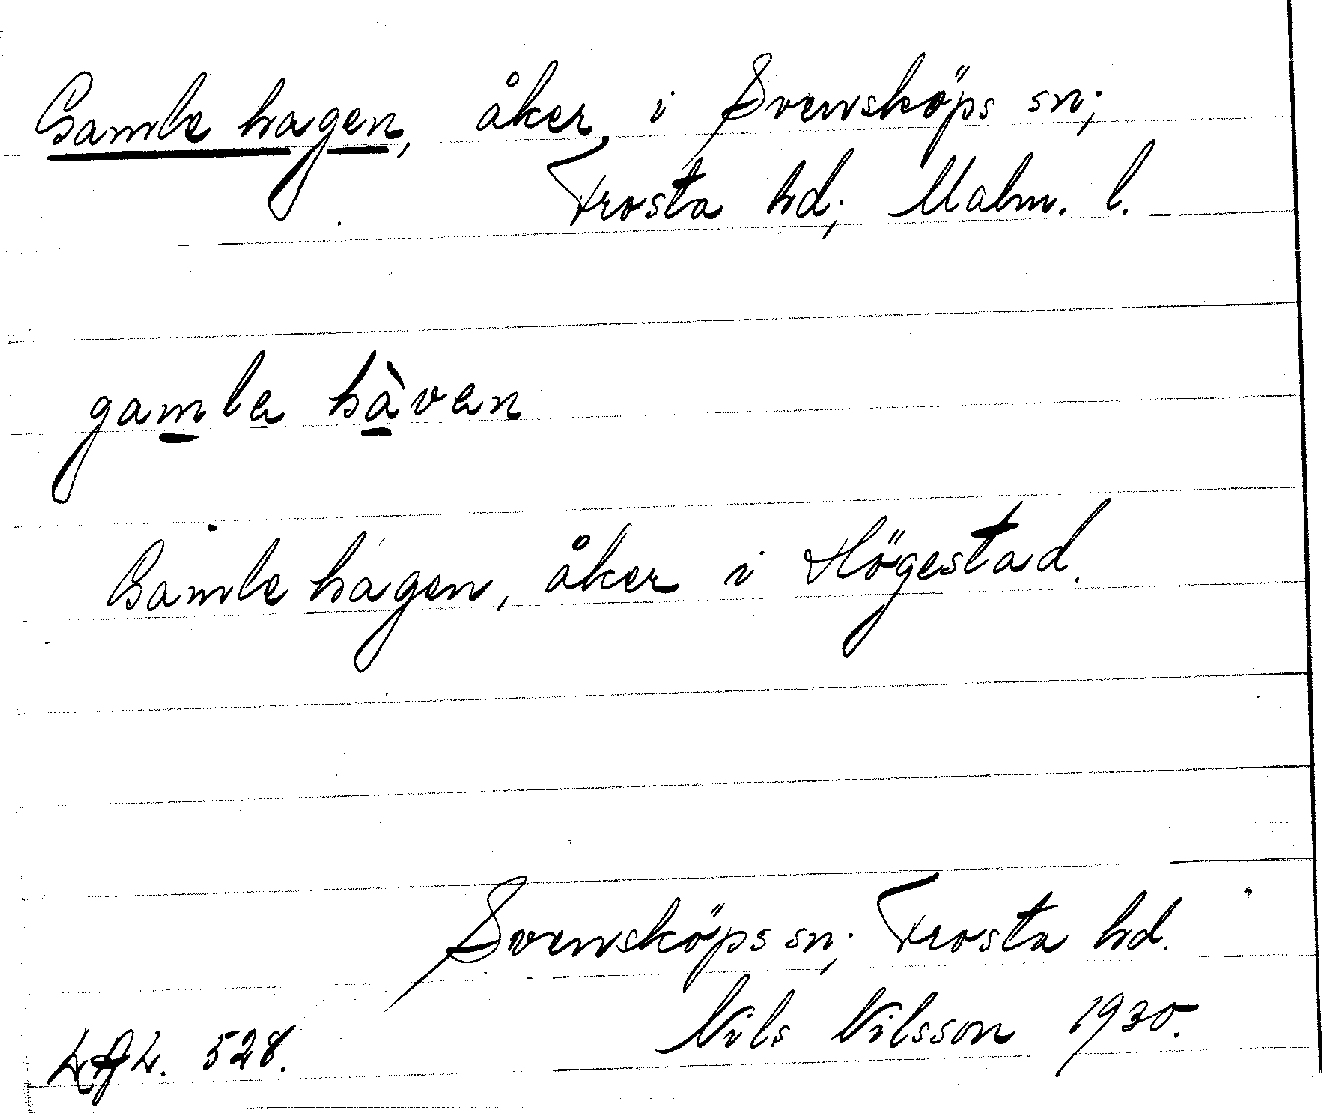 Gamle hagen, åker, i Svensköps sn;
Frosta hd; Malm. l.
gamle hàven
Gamle hagen, åker i Högestad.
Svensköps sn; Frosta hd.
Nils Nilsson 1930.
528.